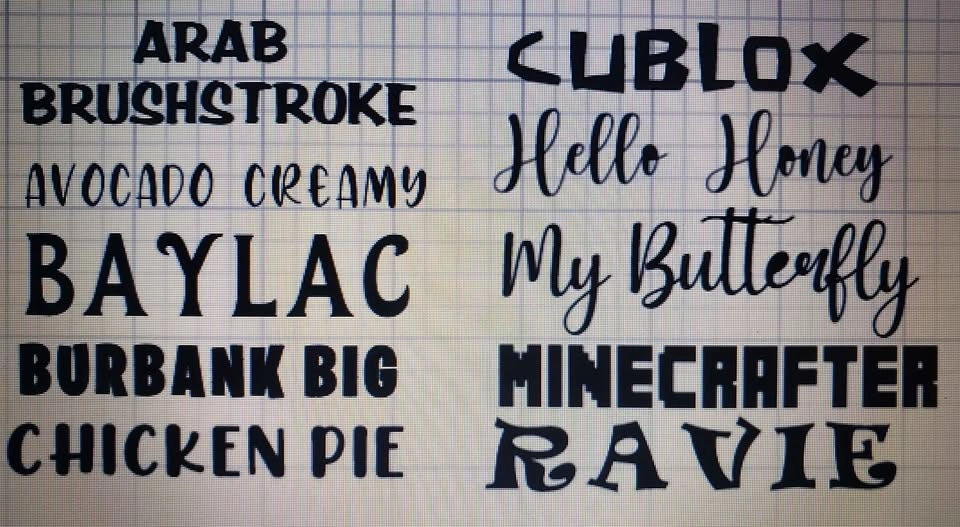 ARAB
BRUSHSTROKE
AVOCADO CREAMY
BAYLAC
BURBANK BIG
CHICKEN PIE
CUBLOX
Hello Honey
My Butterfly
MINECRAFTER
RAVIE